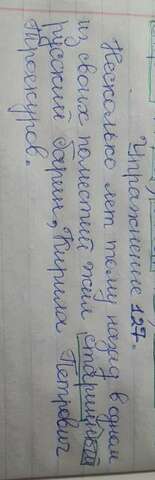 Упражнение 127.
Несколько лет тому назад в одном
из своих поместий жил старинный
русский барин, Кирила Петрович
Троекуров.